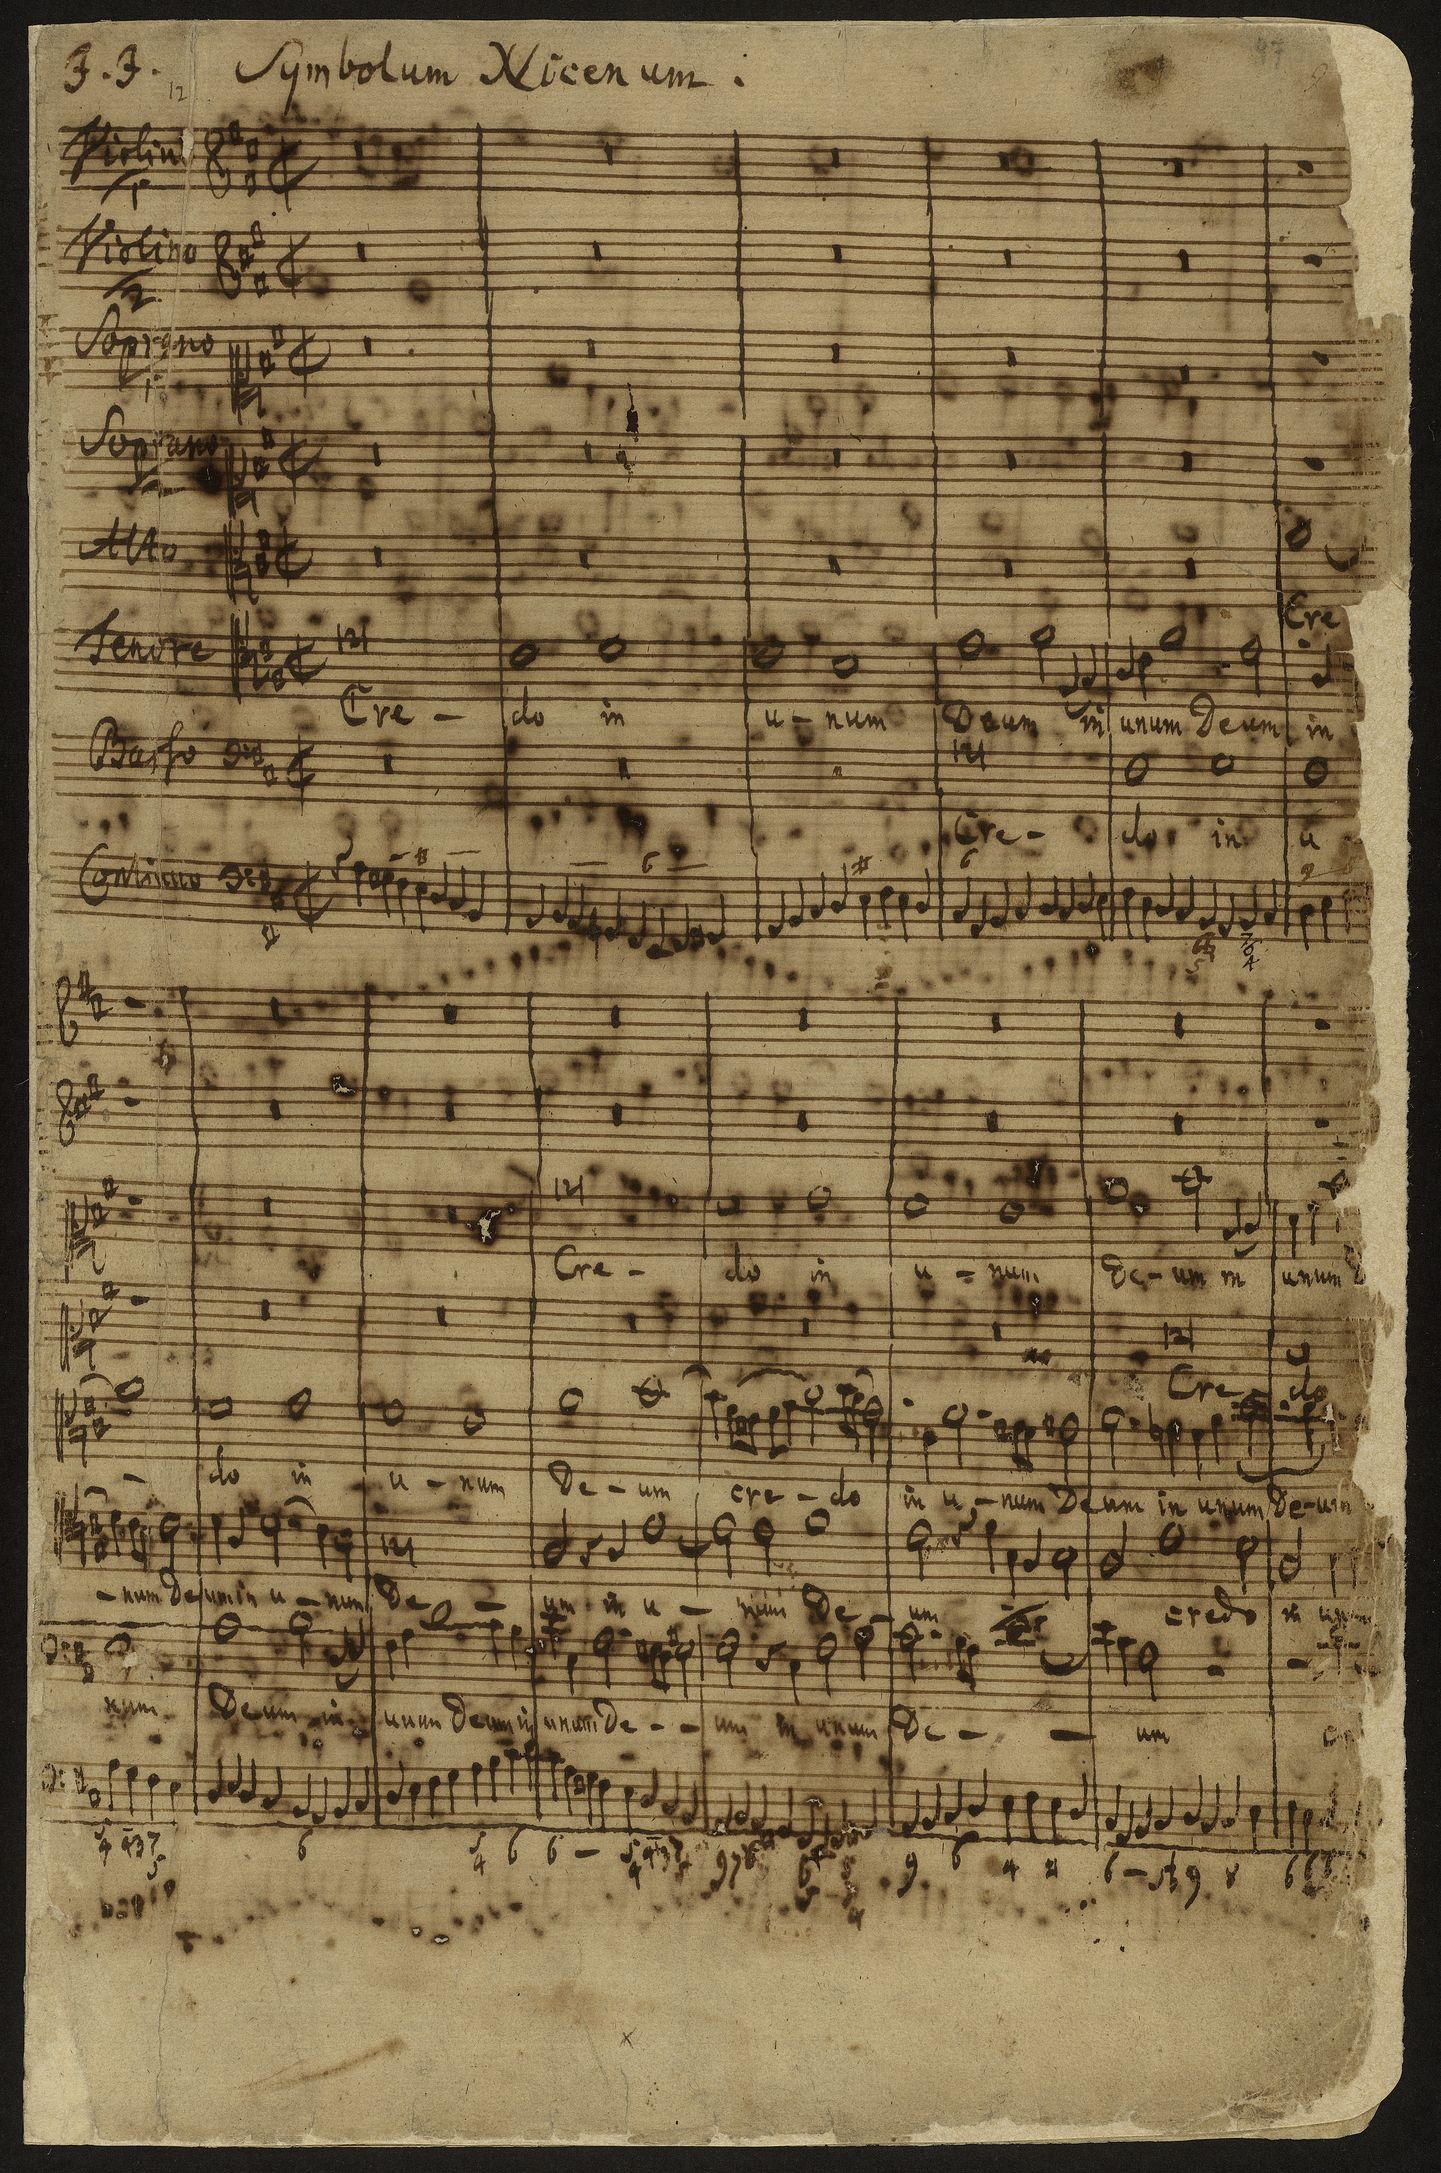 J. J. Symbolum Nicenum.
97
12
9
Violino
1
Violino
2
Soprano
1
Soprano
2
Alto
Cre
Tenore
Cre - do in u - num Deum in unum Deum in
Basso
Cre - do in u
Continuo
Cre - do in u - num De - um in unum
Cre - do
do in u - num De - um cre - do in u - num Deum in unum De - um
- num Deum in u - num De - um in u - num De - um credo in
num Deum in unum Deum in unum De - - um in unum De - - um